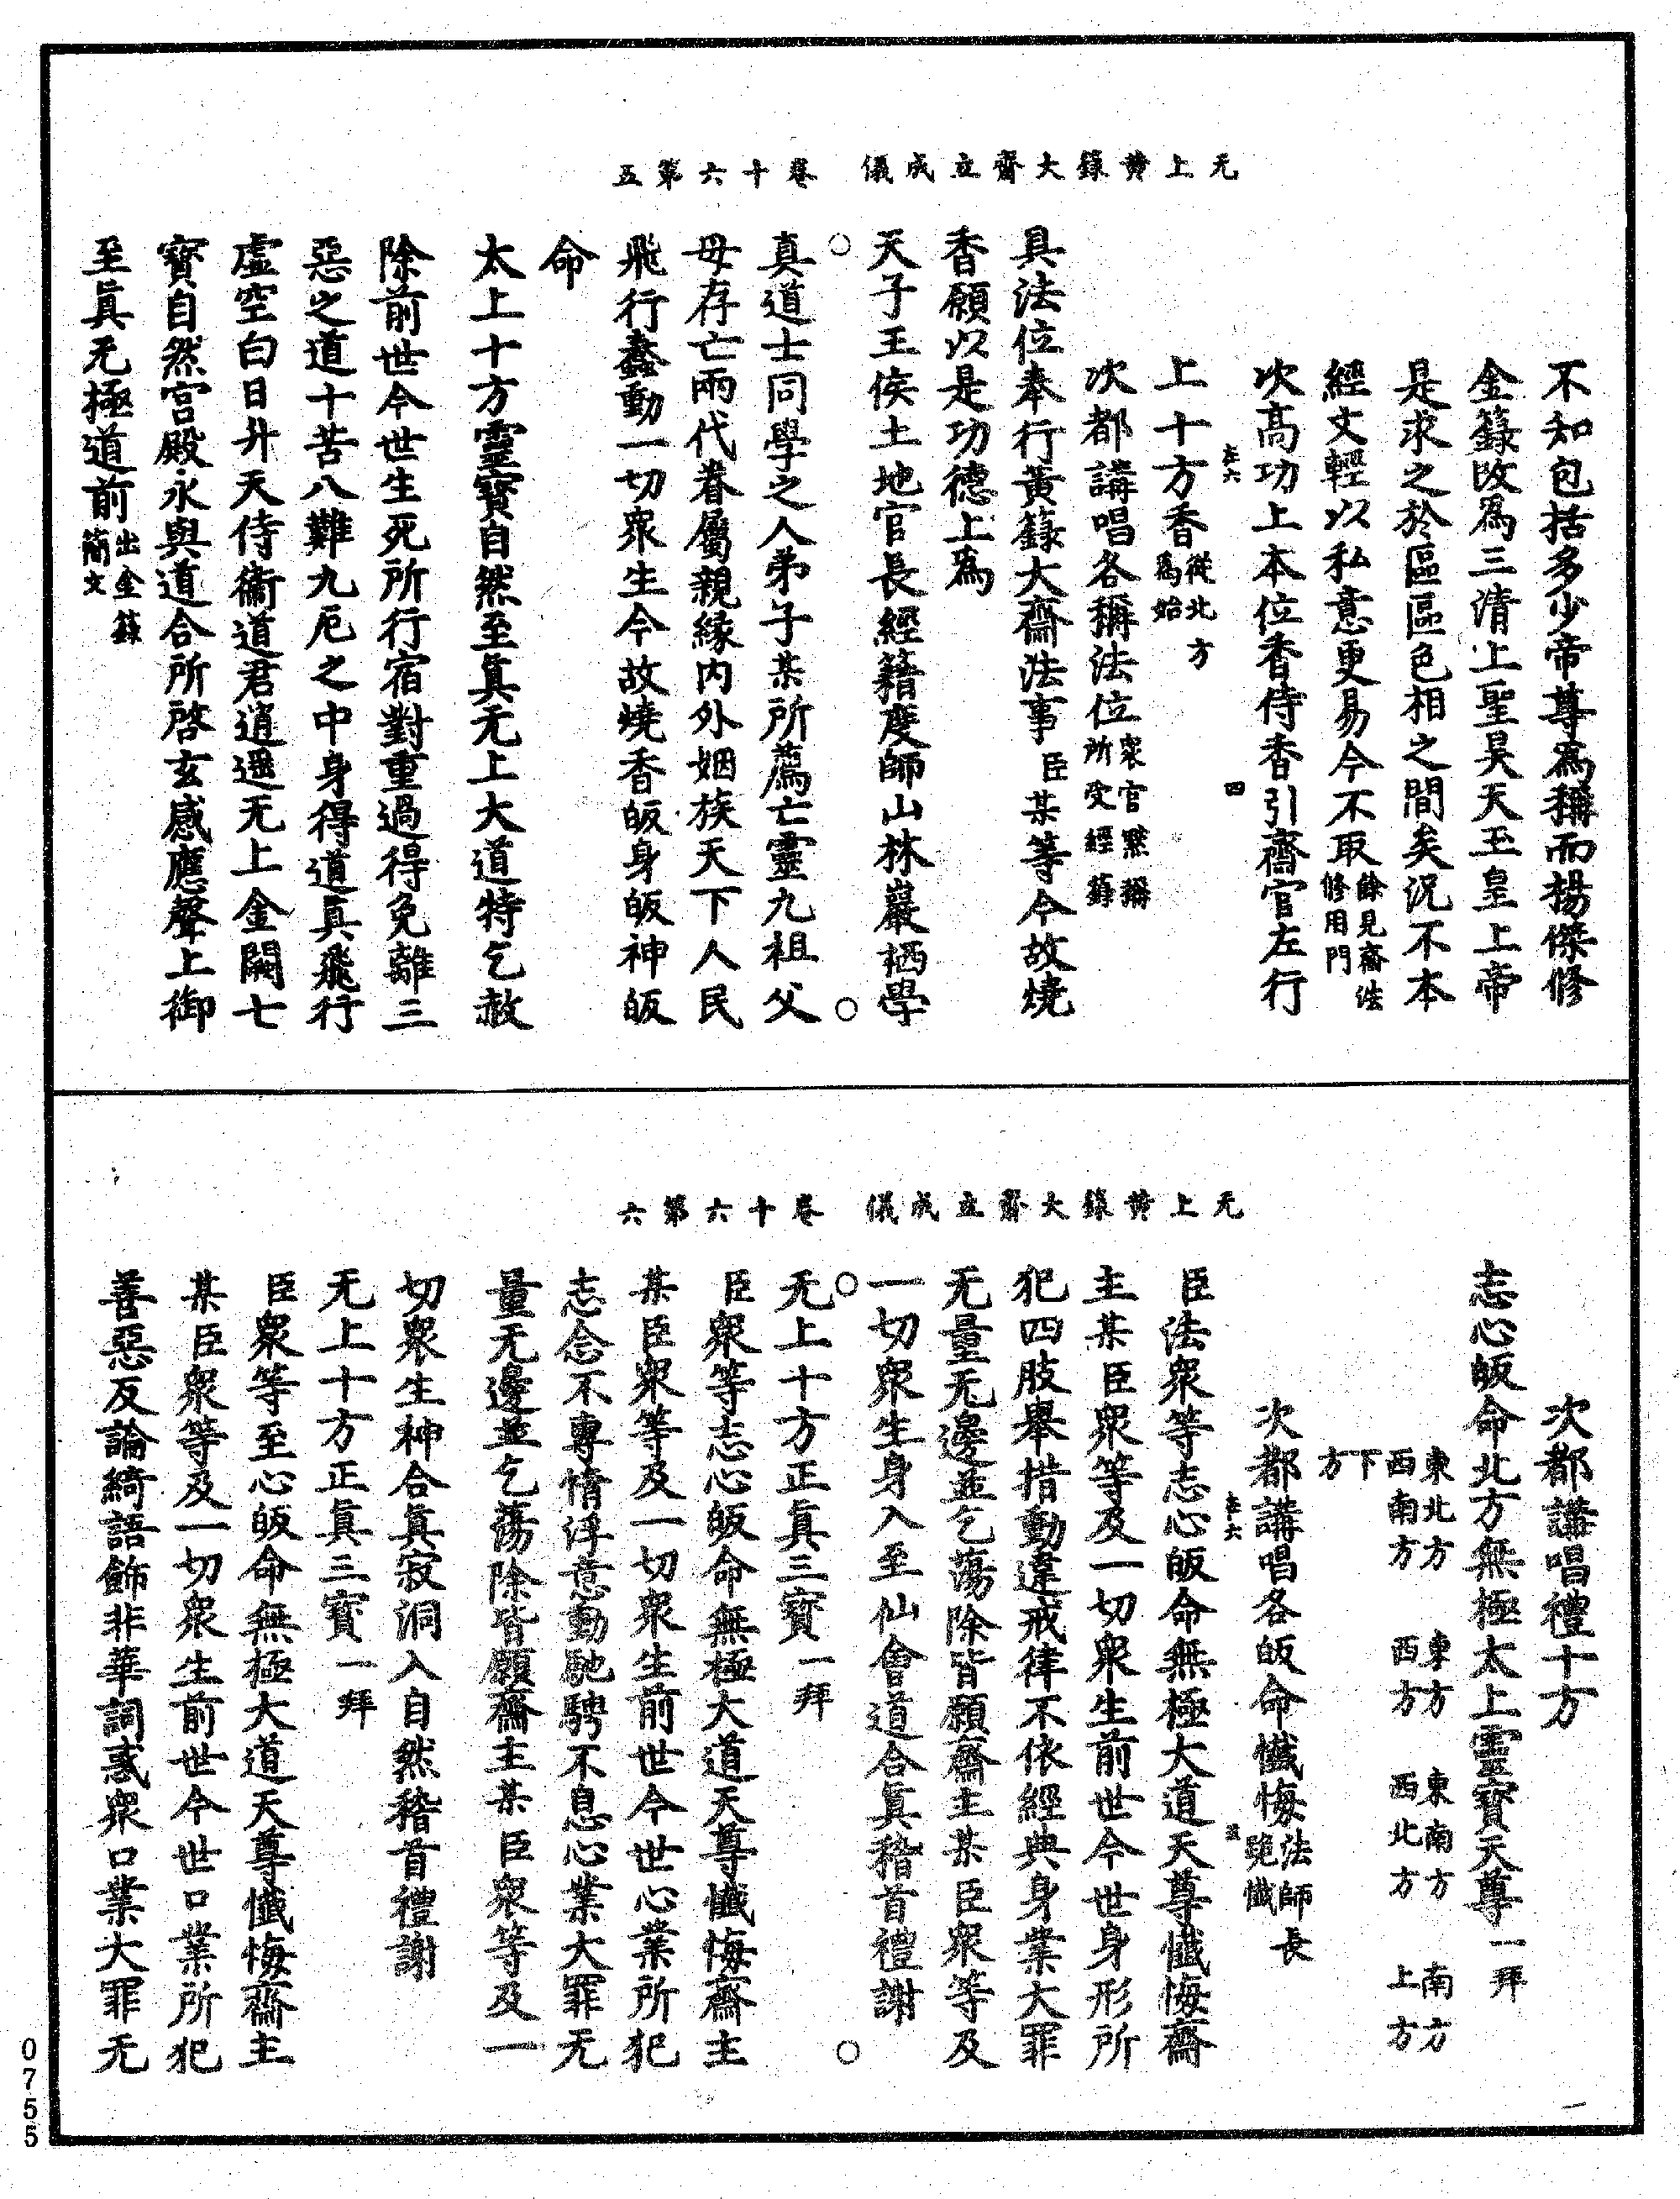 无上黄籙大齋立成儀　卷十六第五
不知包括多少帝尊爲稱而揚傑修
金籙改爲三清上聖昊天玉皇上帝
是求之於區區色相之間矣況不本
經文輕以私意更易今不取餘見齋法修用門
次高功上本位香侍香引齋官左行
上十方香從北方爲始
次都講唱各稱法位衆官默稱所受經籙
具法位奉行黃籙大齋法事臣某等今故燒
香願以是功德上爲
天子王侯土地官長經籍度師山林巖栖學
真道士同學之人弟子某所薦亡靈九祖父
母存亡兩代眷屬親緣内外姻族天下人民
飛行蠢動一切衆生今故燒香皈身皈神皈
命
太上十方靈寶自然至眞无上大道特乞赦
除前世今世生死所行宿對重過得免離三
惡之道十苦八難九厄之中身得道真飛行
虛空白日升天侍衞道君逍遥无上金闕七
寶自然宫殿永與道合所啓玄感應聲上御
至眞无極道前出金籙簡文
无上黄籙大齋立成儀　卷十六第六
次都講唱禮十方
志心皈命北方無極太上靈寶天尊一拜
東北方　東方　東南方　南方
西南方　西方　西北方　上方
下方
次都講唱各皈命懺悔法師長跪懺
臣法衆等志心皈命無極大道天尊懺悔齋
主某臣衆等及一切衆生前世今世身形所
犯四肢舉措動違戒律不依經典身業大罪
无量无邊並乞蕩除皆願齋主某臣衆等及
一切衆生身入至仙會道合眞稽首禮謝
无上十方正眞三寶一拜
臣衆等志心皈命無極大道天尊懺悔齋主
某臣衆等及一切衆生前世今世心業所犯
志念不專情浮意動馳騁不息心業大罪无
量无邊並乞蕩除皆願齋主某臣衆等及一
切衆生神合眞寂洞入自然稽首禮謝
无上十方正眞三寶一拜
臣衆等至心皈命無極大道天尊懺悔齋主
某臣衆等及一切衆生前世今世口業所犯
善惡反論綺語飾非華詞惑衆口業大罪无
0755